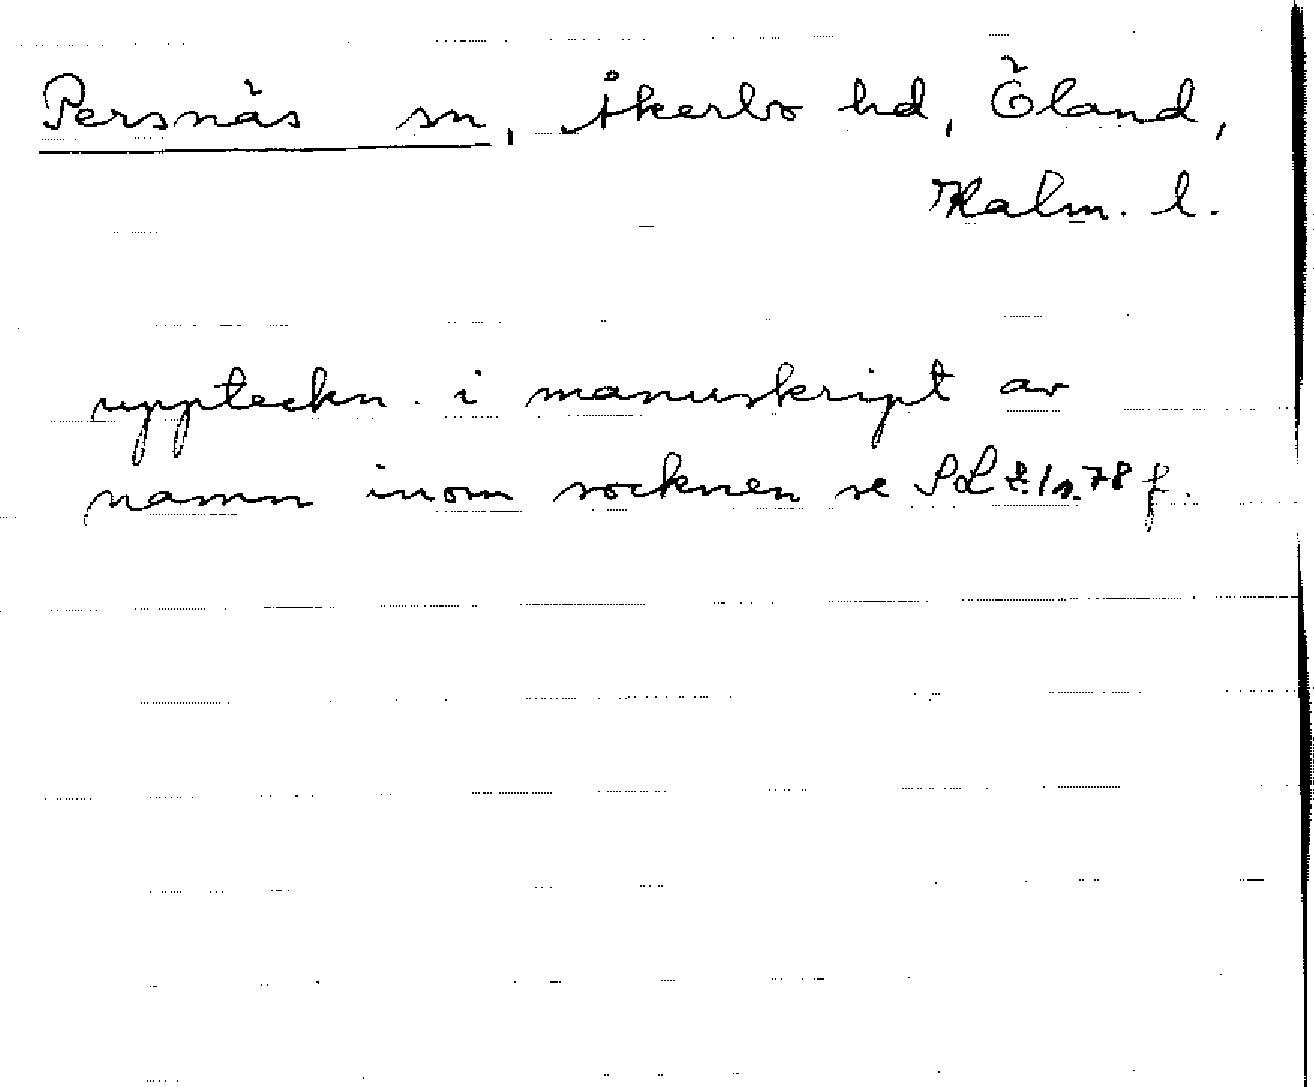 Persnäs sn, Åkerbo hd, Öland,
Kalm. l.
uppteckn. i manuskript av
namn inom socknen se 78 f.